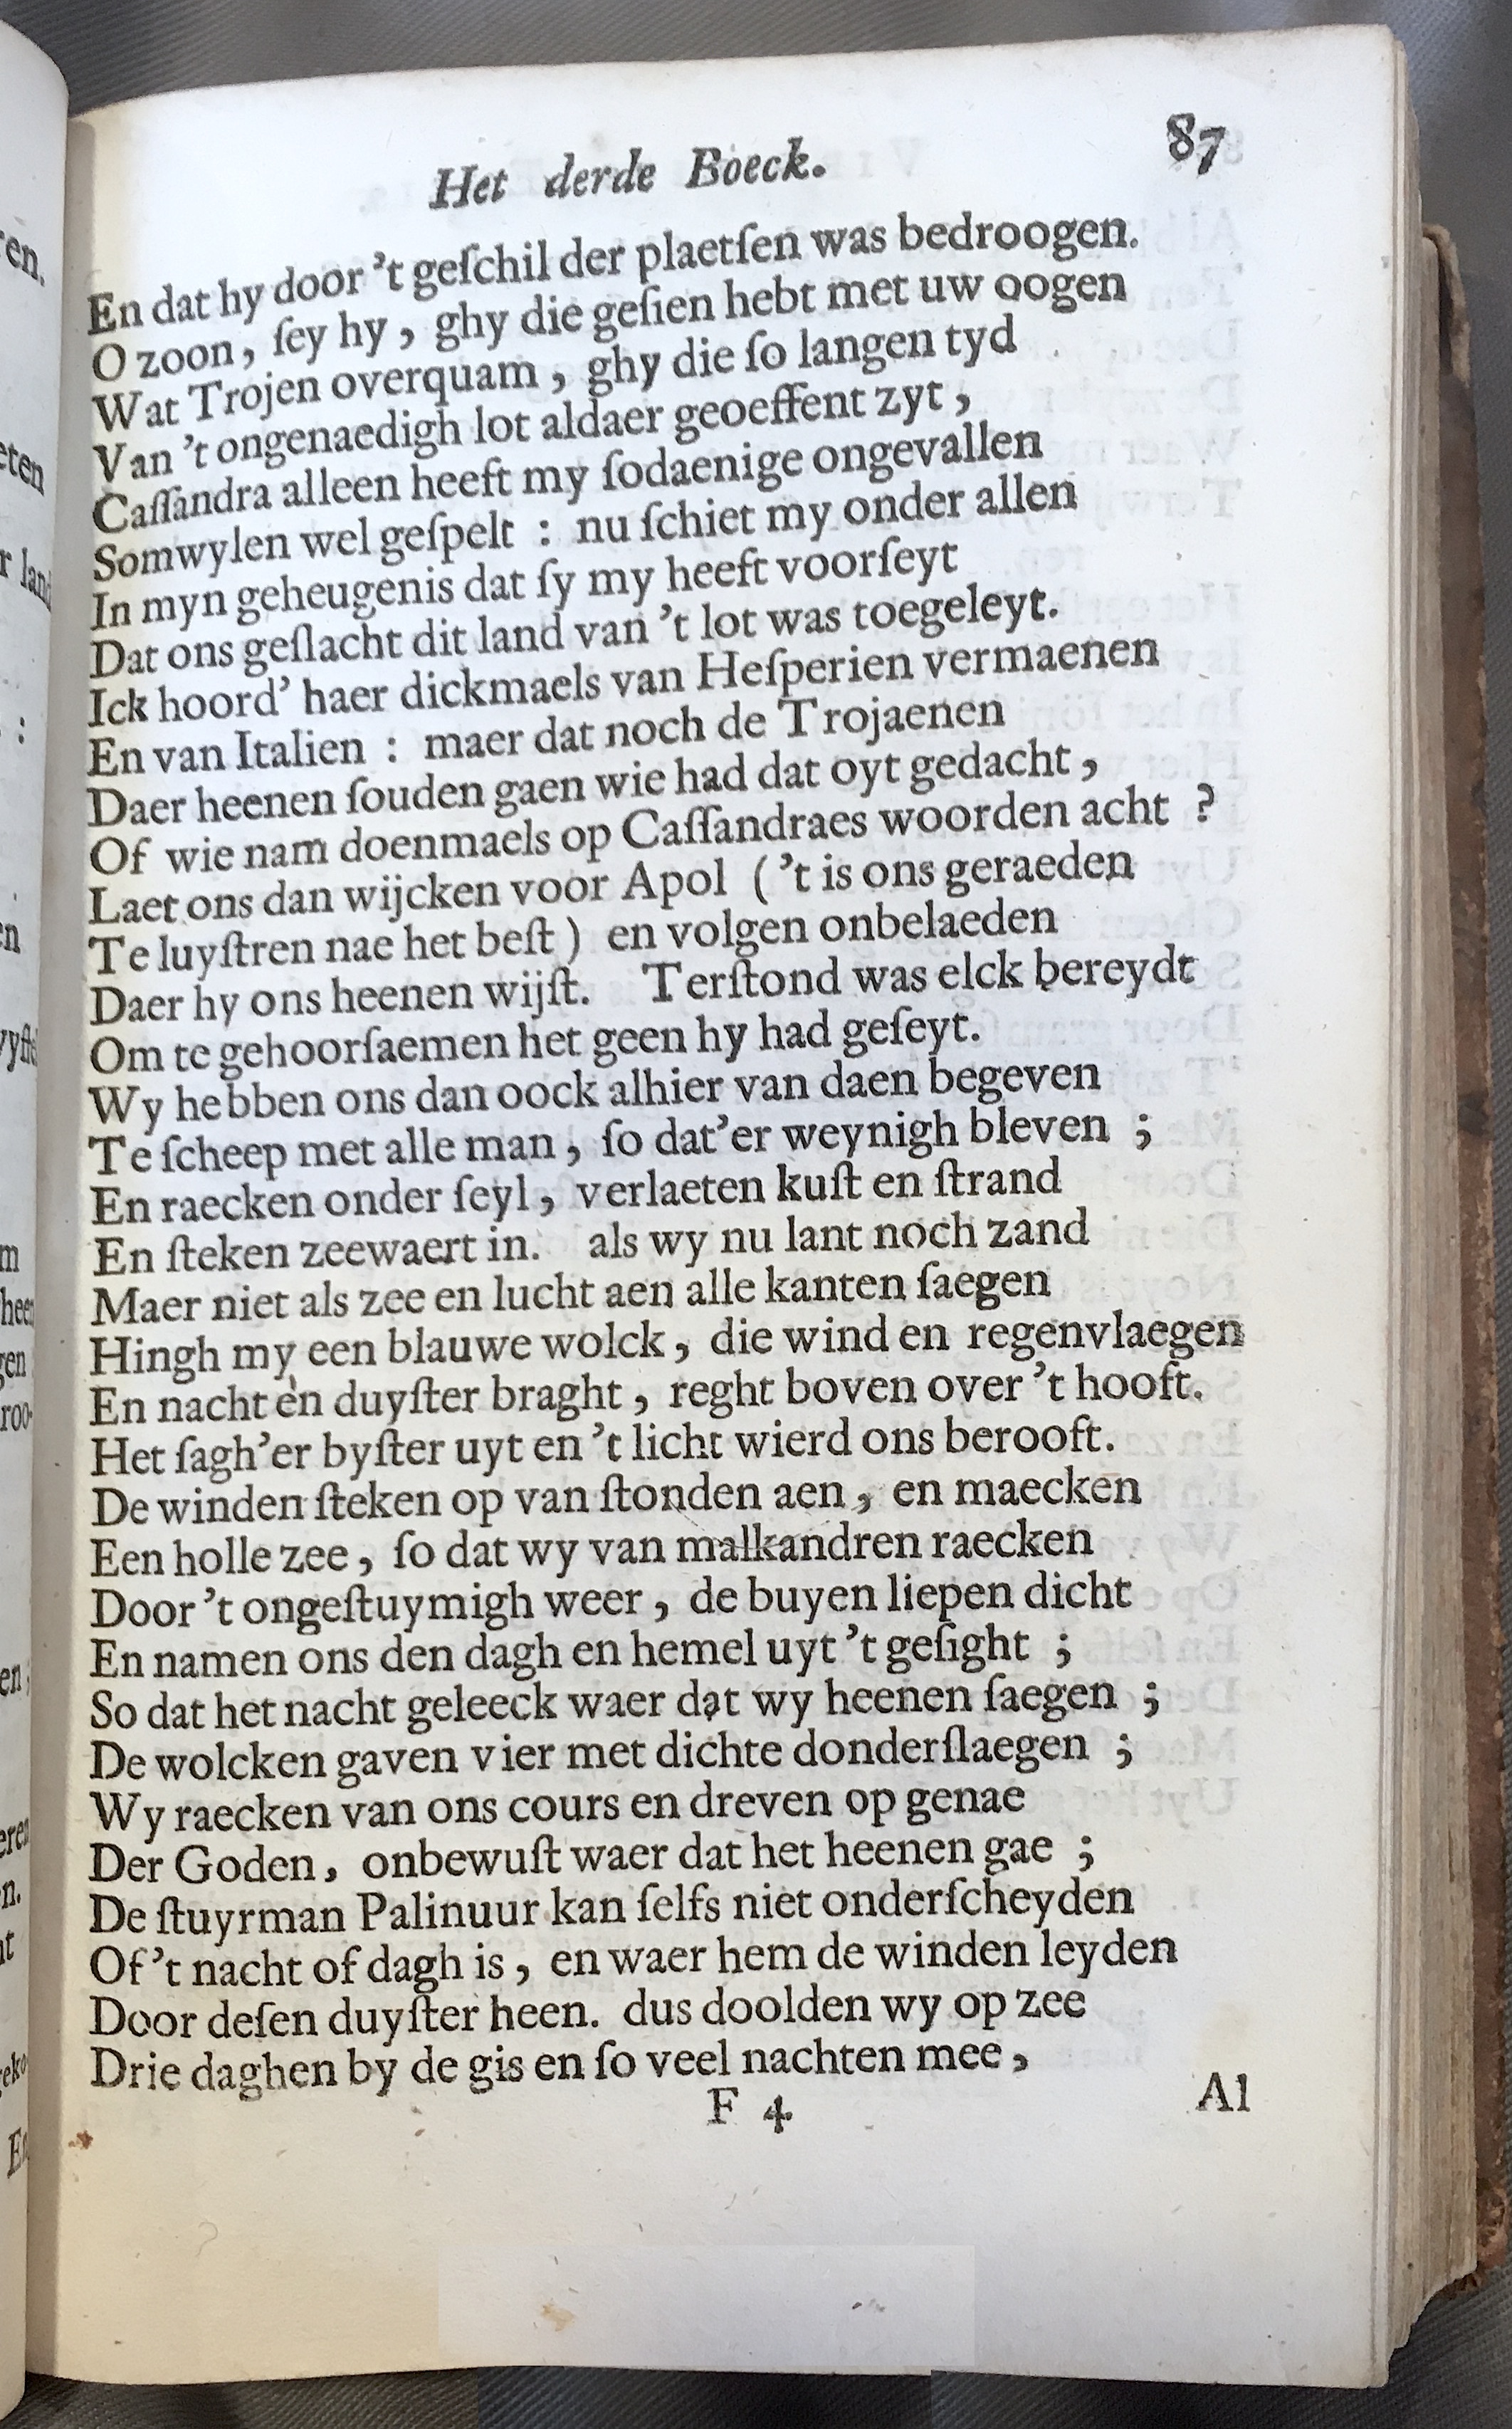 Het derde Boeck. 87
En dat hy door 't geſchil der plaetſen was bedroogen.
O zoon, ſey hy, ghy die geſien hebt met uw oogen
Wat Trojen overquam, ghy die ſo langen tyd
Van 't ongenaedigh lot aldaer geoeffent zyt,
Caſſandra alleen heeft my ſodaenige ongevallen
Somwylen wel geſpelt : nu ſchiet my onder allen
In myn geheugenis dat ſy my heeft voorſeyt
Dat ons geſlacht dit land van 't lot was toegeleyt.
Ick hoord' haer dickmaels van Heſperien vermaenen
En van Italien : maer dat noch de Trojaenen
Daer heenen ſouden gaen wie had dat oyt gedacht,
Of wie nam doenmaels op Caſſandraes woorden acht ?
Laet ons dan wijcken voor Apol ('t is ons geraeden
Te luyſtren nae het beſt) en volgen onbelaeden
Daer hy ons heenen wijſt. Terſtond was elck bereydt
Om te gehoorſaemen het geen hy had geſeyt.
Wy hebben ons dan oock alhier van daen begeven
Te ſcheep met alle man, ſo dat'er weynigh bleven ;
En raecken onder ſeyl, verlaeten kuſt en ſtrand
En ſteken zeewaert in. als wy nu lant noch zand
Maer niet als zee en lucht aen alle kanten ſaegen
Hingh my een blauwe wolck, die wind en regenvlaegen
En nacht en duyſter braght, reght boven over 't hooft.
Het ſagh'er byſter uyt en 't licht wierd ons berooft.
De winden ſteken op van ſtonden aen, en maecken
Een holle zee, ſo dat wy van malkandren raecken
Door 't ongeſtuymigh weer, de buyen liepen dicht
En namen ons den dagh en hemel uyt 't geſight ;
So dat het nacht geleeck waer dat wy heenen ſaegen ;
De wolcken gaven vier met dichte donderſlaegen ;
Wy raecken van ons cours en dreven op genae
Der Goden, onbewuſt waer dat het heenen gae ;
De ſtuyrman Palinuur kan ſelfs niet onderſcheyden
Of 't nacht of dagh is, en waer hem de winden leyden
Door deſen duyſter heen. dus doolden wy op zee
Drie daghen by de gis en ſo veel nachten mee,
F 4 Al